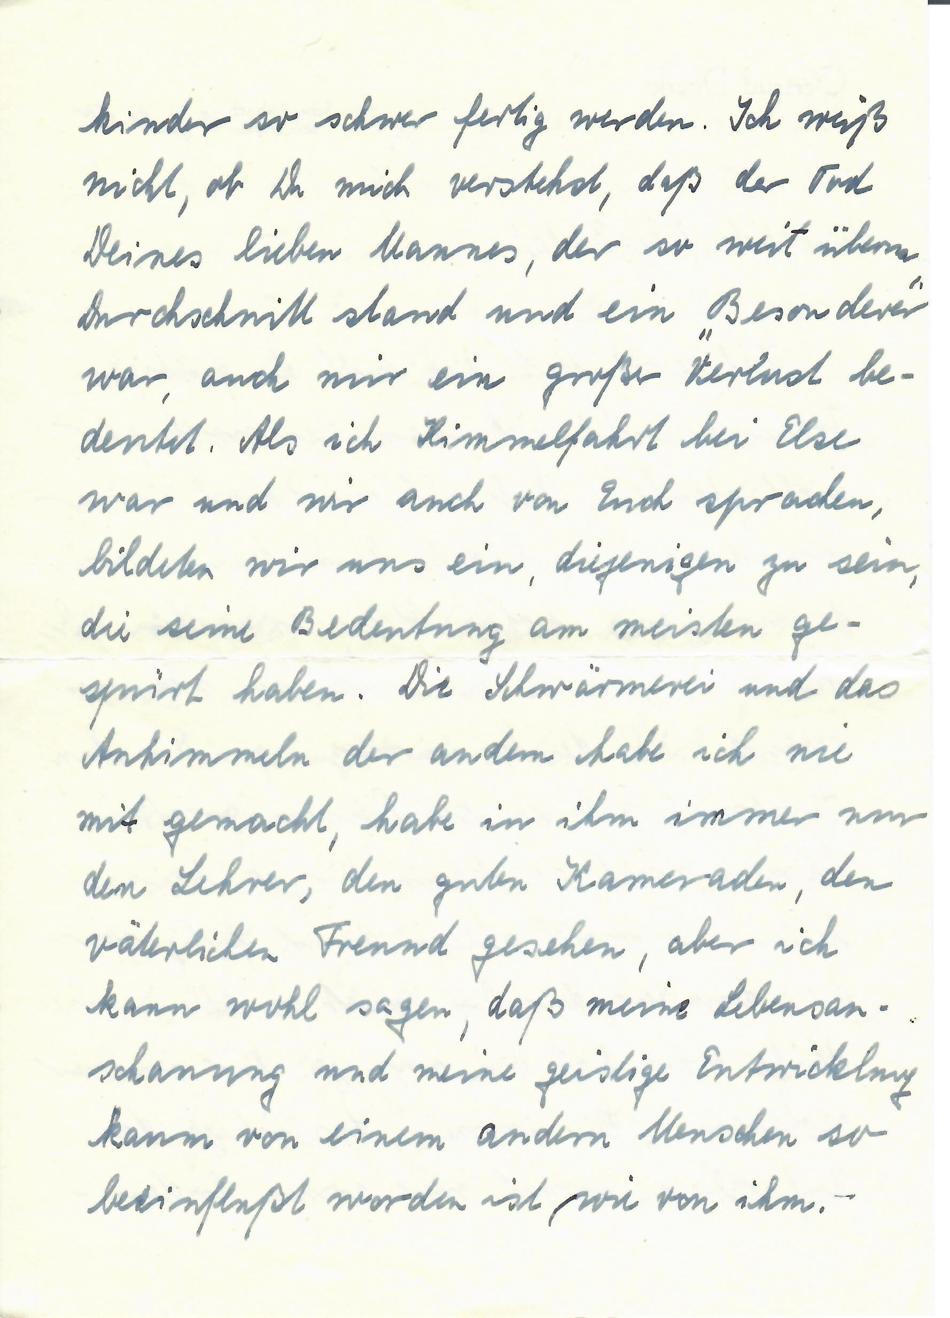 kinder so schwer fertig werden. Ich weiß
nicht, ob Du mich verstehst, daß der Tod
Deines lieben Mannes, der so weit überm
Durchschnitt stand und ein „Besonderer"
war, auch mir ein großer Verlust be-
deutet. Als ich Himmelfahrt bei Else
war und wir auch von Euch sprachen,
bildeten wir uns ein, diejenigen zu sein,
die seine Bedeutung am meisten ge-
spürt haben. Die Schwärmerei und das
Anhimmeln der andern habe ich nie
mit gemacht, habe in ihm immer nur
den Lehrer, den guten Kameraden, den
väterlichen Freund gesehen, aber ich
kann wohl sagen, daß meine Lebensan-
schauung und meine geistige Entwicklung
kaum von einem andern Menschen so
beeinflußt worden ist, wie von ihm. –